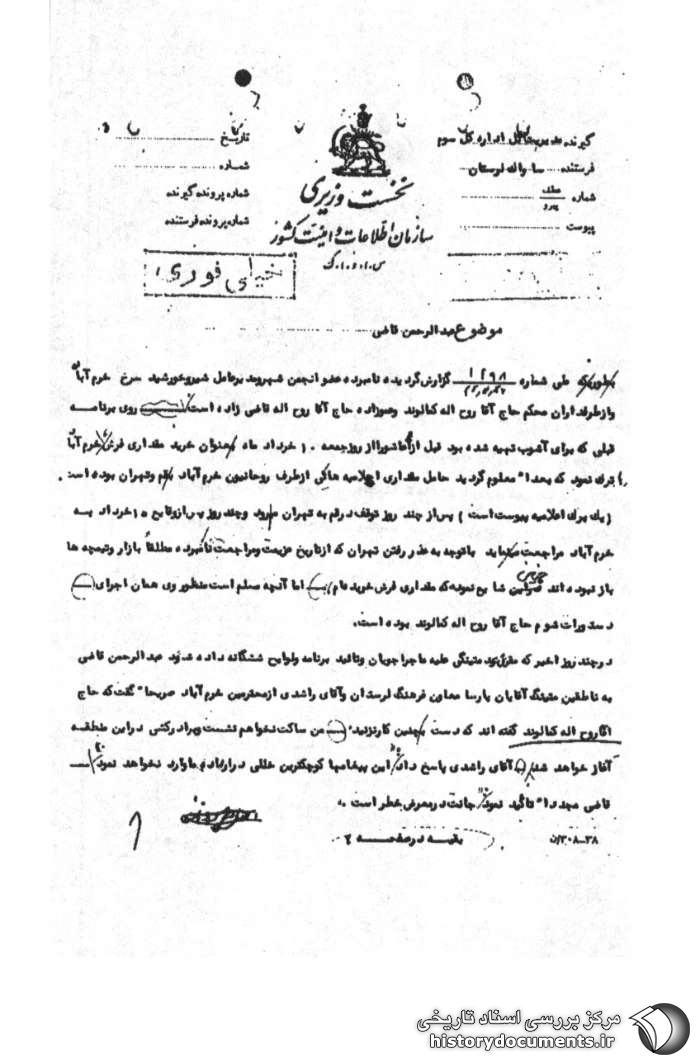 گیرنده مدیریت کل اداره کل سوم
فرستنده ساواک لرستان
شماره
پیوست
نخست وزیری
سازمان اطلاعات و امنیت کشور
س.ا.و.ا.ک
تاریخ
شماره
شماره پرونده گیرنده
شماره پرونده فرستنده
خیلی فوری
موضوع عبدالرحمن قاضی
بطوریکه طی شماره گزارش گردیده نامبرده عضو انجمن شهر و مدیرعامل شیروخورشید سرخ خرم آباد
و از طرفداران محکم حاج آقا روح اله کمالوند و عموزاده حاج آقا روح اله قاضی زاده است روی برنامه
قبلی که برای آشوب تهیه شده بود قبل از عاشورا از روز جمعه ۱۰ خرداد ماه بعنوان خرید مقداری فرش خرم آباد
را ترک نمود که بعدا" معلوم گردید حامل مقداری اعلامیه هائی از طرف روحانیون خرم آباد بقم و تهران بوده است
(یک برگ اعلامیه پیوست است) پس از چند روز توقف در قم به تهران میرود و چند روز پس از وقایع ۱۵ خرداد به
خرم آباد مراجعت مینماید با توجه به عذر رفتن تهران که از تاریخ عزیمت و مراجعت نامبرده مطلقاً بازار و تیمچه ها
باز نبوده اند شایع نموده که مقداری فرش خریده ام اما آنچه مسلم است منظور وی همان اجرای
دستورات شوم حاج آقا روح اله کمالوند بوده است.
در چند روز اخیر که مقرر بود متینگی علیه ماجراجویان و تائید برنامه و لوایح ششگانه داده شود عبدالرحمن قاضی
به ناطقین متینگ آقایان پارسا معاون فرهنگ لرستان و آقای راشدی از محترمین خرم آباد صریحا" گفت که حاج
آقا روح اله کمالوند گفته اند که دست بچنین کار نزنید من ساکت نخواهم نشست و برادرکشی در این منطقه
آغاز خواهد شد آقای راشدی پاسخ داد این پیغامها کوچکترین خللی در اراده ما وارد نخواهد نمود
قاضی مجددا" تاکید نمود جانت در معرض خطر است.
بقیه در صفحه ۲
۳۰۸-۳۸/ن
مرکز بررسی اسناد تاریخی
historydocuments.ir